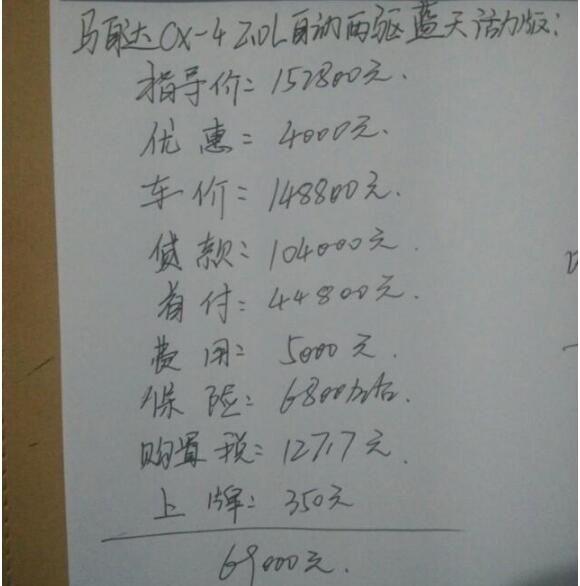 马自达CX-4 2.0L自动两驱蓝天活力版:
指导价:152800元.
优惠:4000元.
车价:148800元.
贷款:104000元.
首付:44800元.
费用:5000元.
保险:6800左右.
购置税:12717元.
上牌:350元
69000元.